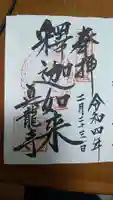 奉拝
令和四年
二月二十三日
釋迦如来
真龍寺